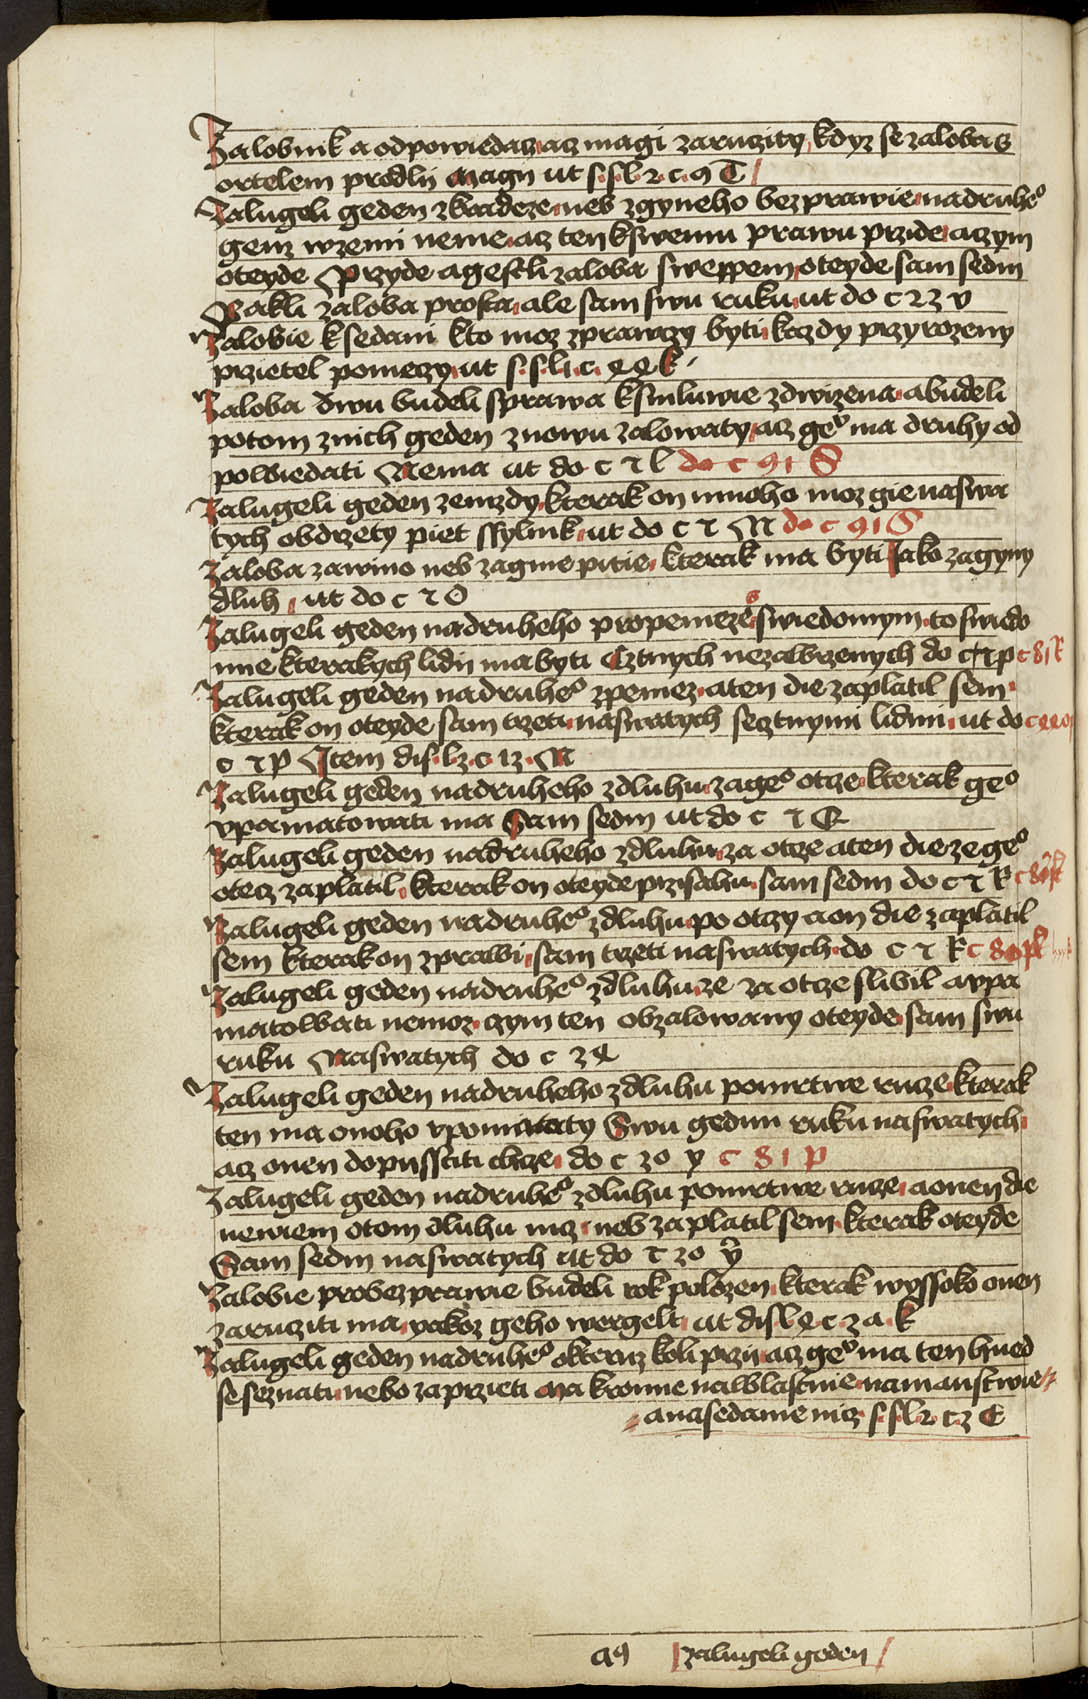 Zalobnik a odpowiedacz acz magi zaruczity kdyz se zaloba s
ortelem prodlij Magy ut s. s. l. 2. c. 9 T
Zalugeli geden zkradeze neb zgyneho bezprawie nadruheº
genz wzemi neme acz ten kswemu prawu przide aczym
oteyde Przyde a gestli zaloba sweppem oteyde sam sedm
Pakli zaloba prosta ale sam swu ruku ut do c 23 v
Zalobie ksedani kto moz zprawczy byti kazdy przyrozeny
przietel pomoczy ut s. s. l. 1. c. k
Zaloba dwu budeli sprawa ksmluwie zdwizena abudeli
potom znich geden znowu zalowaty acz geº ma druhy od
powiedati Nema ut do c 7 l do c 91 S
Zalugeli geden zemzdy kterak on mnoho moz gie naswa
tych obdrzety piet ssylink ut do c 7 N do c 91 S
Zaloba zawino neb zagine pitie kterak ma byti Jako zagyny
dluh ut do c 7 O
Zalugeli geden nadruheho propenieze swiedomym to swiedo
mie kterakych lidii ma byti Cztnych nezawrzenych do c 7 p c 81 R
Zalugeli geden nadruheº zpeniez aten die zaplatil sem
kterak on oteyde sam trzeti naswatych seztnymi lidmi ut do
c 7 p Item dis. l. 3. c. 13. N
Zalugeli geden nadruheho zdluhu zageº otcze kterak geº
vpamatowati ma Sam sedm ut do c 7 Q
Zalugeli geden nadruheho zdluhu za otcze aten die ze geº
otecz zaplatil kterak on oteyde przisahu sam sedm do c 7 R
Zalugeli geden nadruheº zdluhu po otczy a on die zaplatil
sem kterak on zprawi sam trzeti naswatych do c 7 R
Zalugeli geden nadruheº zdluhu ze za otcze slibil a vpa
matowati nemoz czym ten obzalowany oteyde sam swu
ruku Naswatych do c 2 Q
Zalugeli geden nadruheho zdluhu pomrtwe rucze kterak
ten ma onoho vpominaty Swu gednu ruku naswatych
acz onen dopussciti chcze do c 30 y c 81 p
Zalugeli geden nadruheº zdluhu pomrtwe rucze a onen die
newiem otom dluhu nicz neb zaplatil sem kterak oteyde
Sam sedm naswatych ut do c 30 y
Zalobie probezprawie budeli rok polozen kterak wyssoko onen
zarucziti ma yakoz geho wergelt ut dis l c. 2 a. k
Zalugeli geden nadruheº okteruz koli przij acz geº ma ten hned
se seznati nebo zaprzieti Ma kromie nawlastnie namanstwie
anasedanie nicz s. s. l. 2. c. 3 C
a9 zalugeli geden